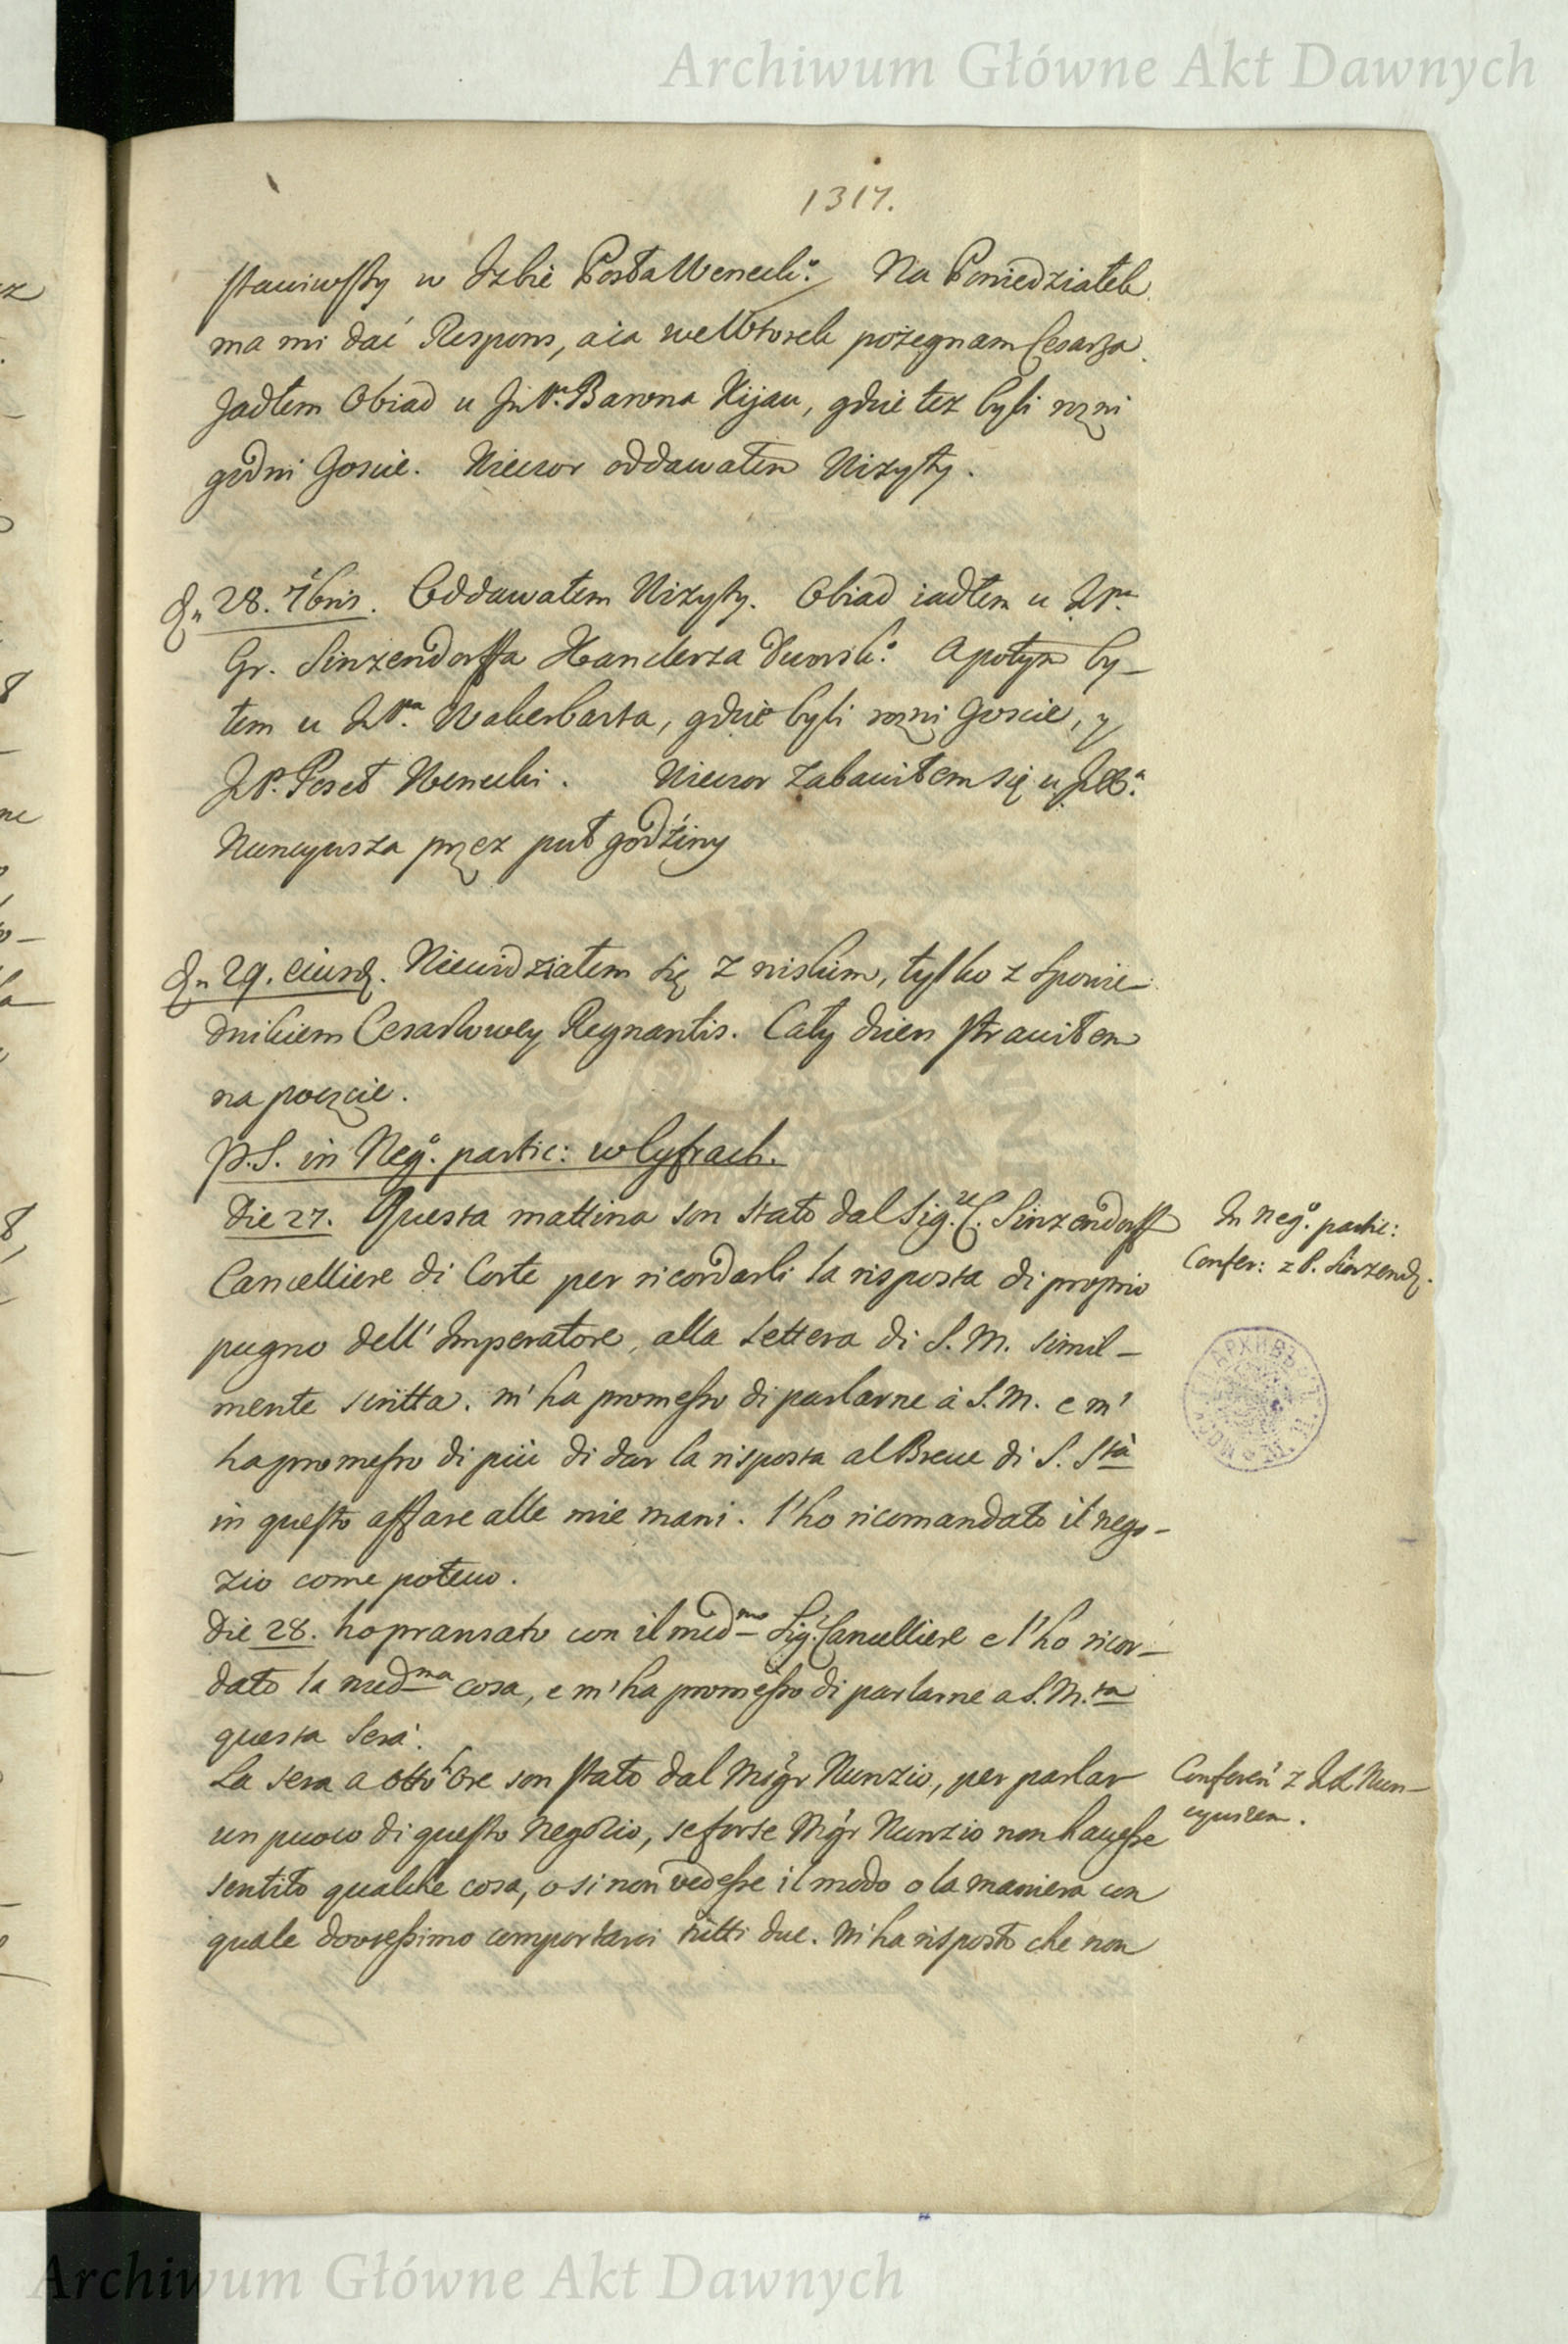 Archiwum Główne Akt Dawnych
1317.
stawiwszy w Izbie Posła Wenecko: Na Poniedziałek
ma mi dać Respons, a ia we Wtorek pożegnam Cesarza.
Jadłem Obiad u Barona Kijau, gdzie tez byli rozni
godni Goscie. Wieczor oddawałem Wizyty.
28. 7bris. Oddawałem Wizyty. Obiad iadłem u JPa
Gr. Sinzendorffa Kanclerza Dworsko: a potym by-
łem u JPa Wakerbarta, gdzie byli rozni Goscie, y
JP. Poseł Wenecki. Wieczor zabawiłem się u
Nuncyusza przez puł godźiny
29. eiusd. Niewidziałem się z niskim, tylko z Spowie-
dnikiem Cesarzowey Regnantis. Cały dzien strawiłem
na poczcie.
P.S. in Nego. partic: w Cyfrach.
Die 27. Questa mattina son stato dal Sig.re C. Sinzendorff
In nego. partic:
Confer: z P. Sinzend.
Cancelliere di Corte per ricordarli la risposta di proprio
pugno dell' Imperatore, alla lettera di S. M. simil-
mente scritta. m' ha promesso di parlarne à S. M. e m'
ha promesso di più di dar la risposta al Breve di S. Stà
in questo affare alle mie mani. l'ho ricomandato il nego-
zio come potevo.
Die 28. ho pransato con il medmo Sig. Cancelliere e l'ho ricor-
dato la medma cosa, e m'ha promesso di parlarne a S. M.ta
questa Sera.
La sera a otto Ore son stato dal Msgr Nunzio, per parlar
Conferen z JX Nun-
cyuszem.
un puoco di questo Negozio, se forse Mgr Nunzio non havesse
sentito qualche cosa, o si non vedesse il modo o la maniera con
quale dovressimo comportarci tutti due. M'ha risposto che non
Archiwum Główne Akt Dawnych